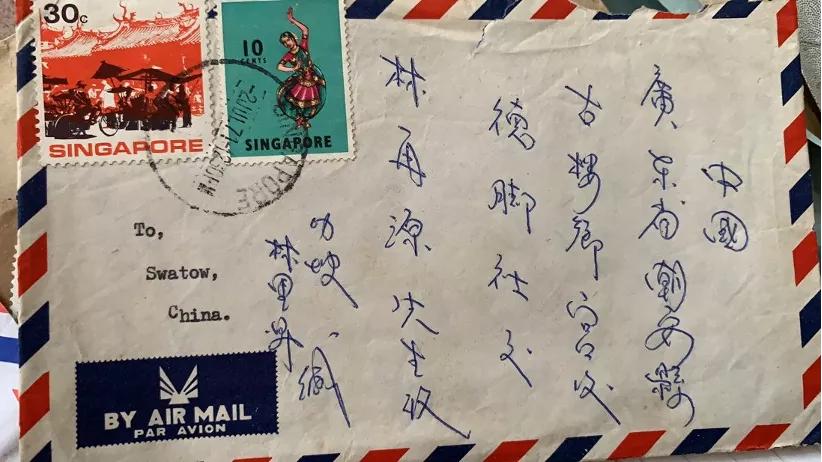 30c
SINGAPORE
10
CENTS
SINGAPORE
SINGAPORE
中國
廣东省潮安縣
古楼鄉宫口
德脚社交
林再源先生收
叻坡
林里 緘
To,
Swatow,
China.
BY AIR MAIL
PAR AVION